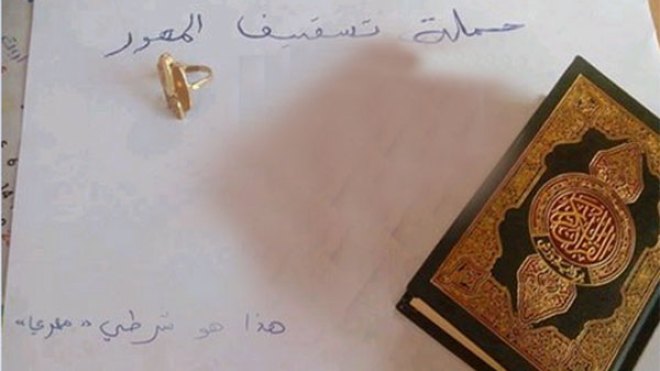 حملة تسقيف المهور
هذا هو شرطي "مهري"